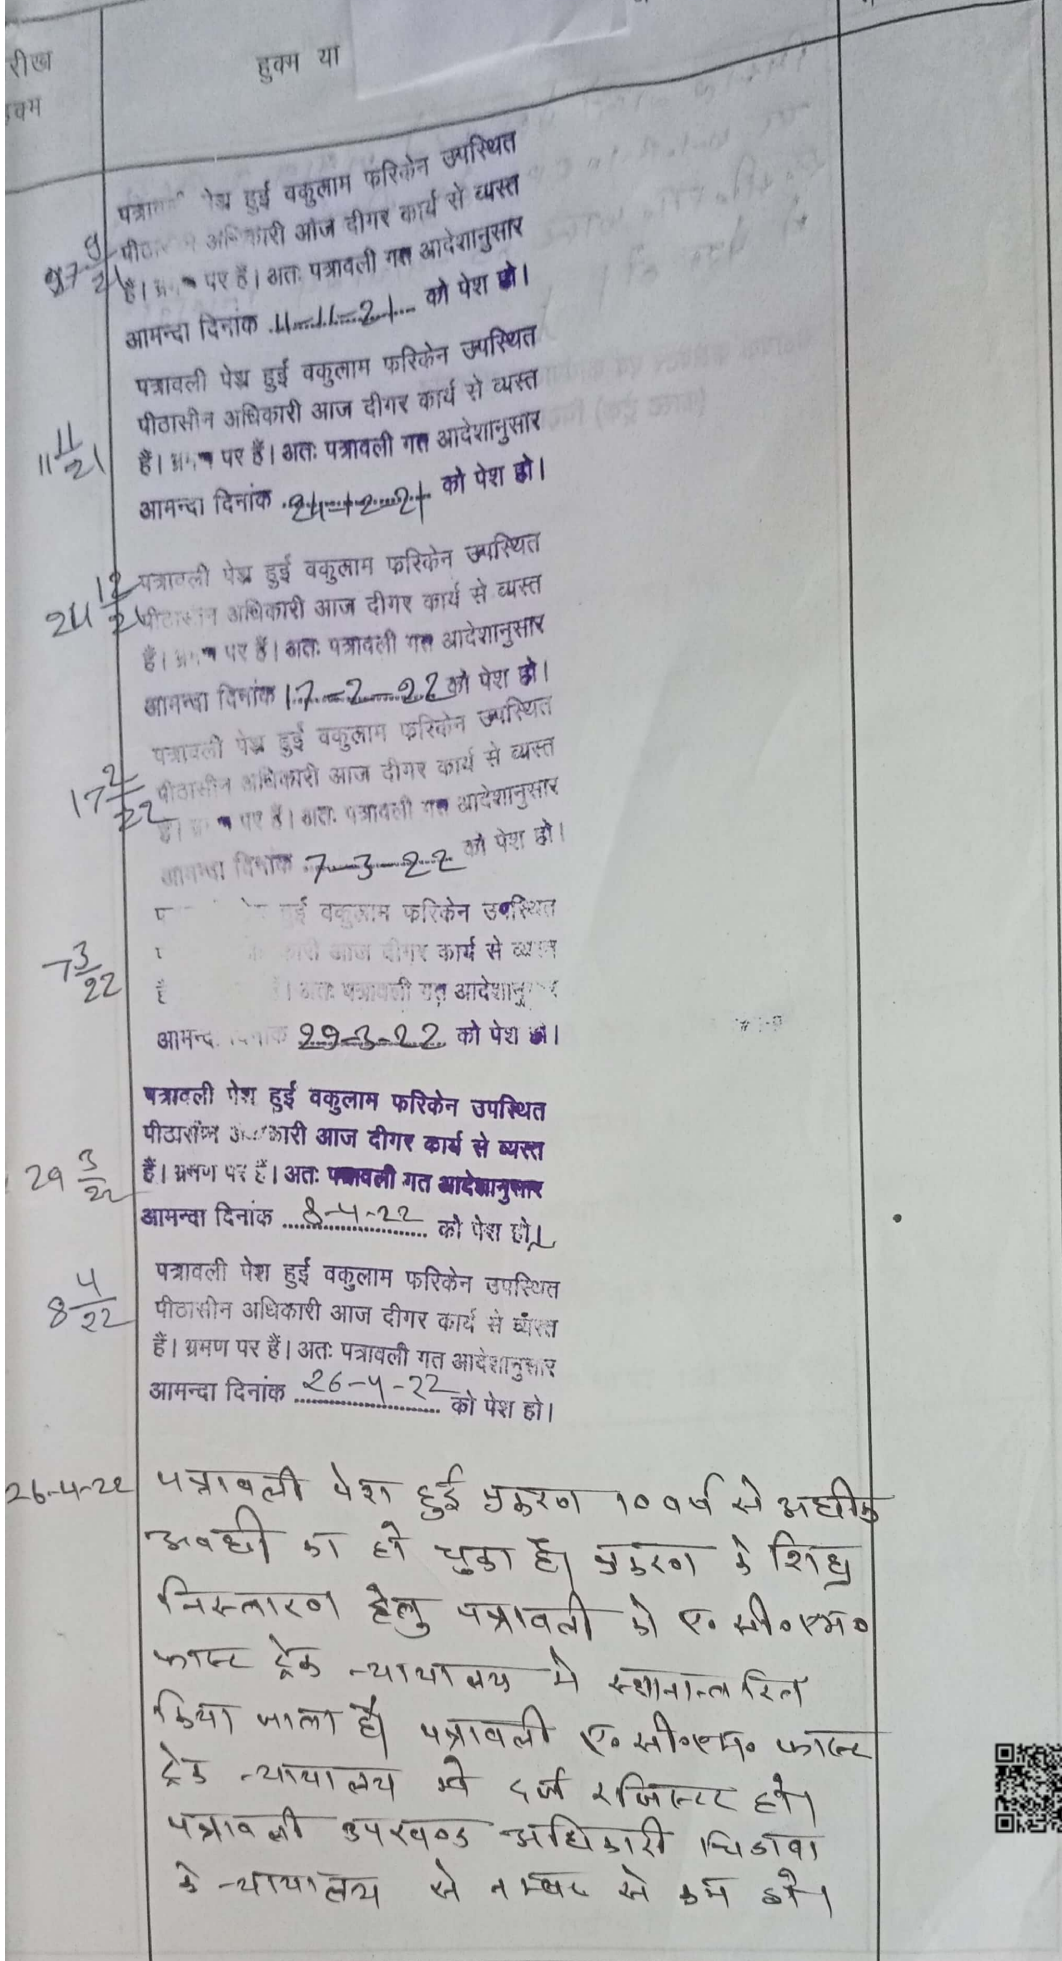 रीख
हुक्म या
क्म
पेश हुई वकुलाम फरिकेन उपस्थित
अधिकारी आज दीगर कार्य से व्यस्त
9
21
है। पर हैं। अतः पत्रावली गत आदेशानुसार
आमन्दा दिनांक 11-11-21 को पेश हो।
पत्रावली पेश हुई वकुलाम फरिकेन उपस्थित
पीठासीन अधिकारी आज दीगर कार्य से व्यस्त
11 11/21
हैं। पर हैं। अतः पत्रावली गत आदेशानुसार
आमन्दा दिनांक 24-12-21 को पेश हो।
24 12/21
पत्रावली पेश हुई वकुलाम फरिकेन उपस्थित
पीठासीन अधिकारी आज दीगर कार्य से व्यस्त
हैं। पर हैं। अतः पत्रावली गत आदेशानुसार
आमन्दा दिनांक 17-2-22 को पेश हो।
पत्रावली पेश हुई वकुलाम फरिकेन उपस्थित
17 2/22
पीठासीन अधिकारी आज दीगर कार्य से व्यस्त
हैं। पर हैं। अतः पत्रावली गत आदेशानुसार
आमन्दा दिनांक 7-3-22 को पेश हो।
हुई वकुलाम फरिकेन उपस्थित
7 3/22
कारी आज दीगर कार्य से व्यस्त
है । अतः पत्रावली गत
29-3-22 को पेश हो।
पत्रावली पेश हुई वकुलाम फरिकेन उपस्थित
पीठासीन आज दीगर कार्य से व्यस्त
29 3/22
हैं। भ्रमण पर हैं। अतः पत्रावली गत आदेशानुसार
आमन्दा दिनांक 8-4-22 को पेश हो।
पत्रावली पेश हुई वकुलाम फरिकेन उपस्थित
8 4/22
पीठासीन अधिकारी आज दीगर कार्य से व्यस्त
हैं। भ्रमण पर हैं। अतः पत्रावली गत आदेशानुसार
आमन्दा दिनांक 26-4-22 को पेश हो।
26-4-22 पत्रावली पेश हुई प्रकरण 10 वर्ष से अधीक
अवधी का हो चुका है। प्रकरण के शिघ्र
निस्तारण हेतु पत्रावली को ए० सी० एम०
फास्ट ट्रेक न्यायालय मे स्थानान्तरित
किया जाता है। पत्रावली ए० सी० एम० फास्ट
ट्रेक न्यायालय मे दर्ज रजिस्टर हो।
पत्रावली उपखण्ड अधिकारी चिडावा
के न्यायालय से नम्बर से कम हो।